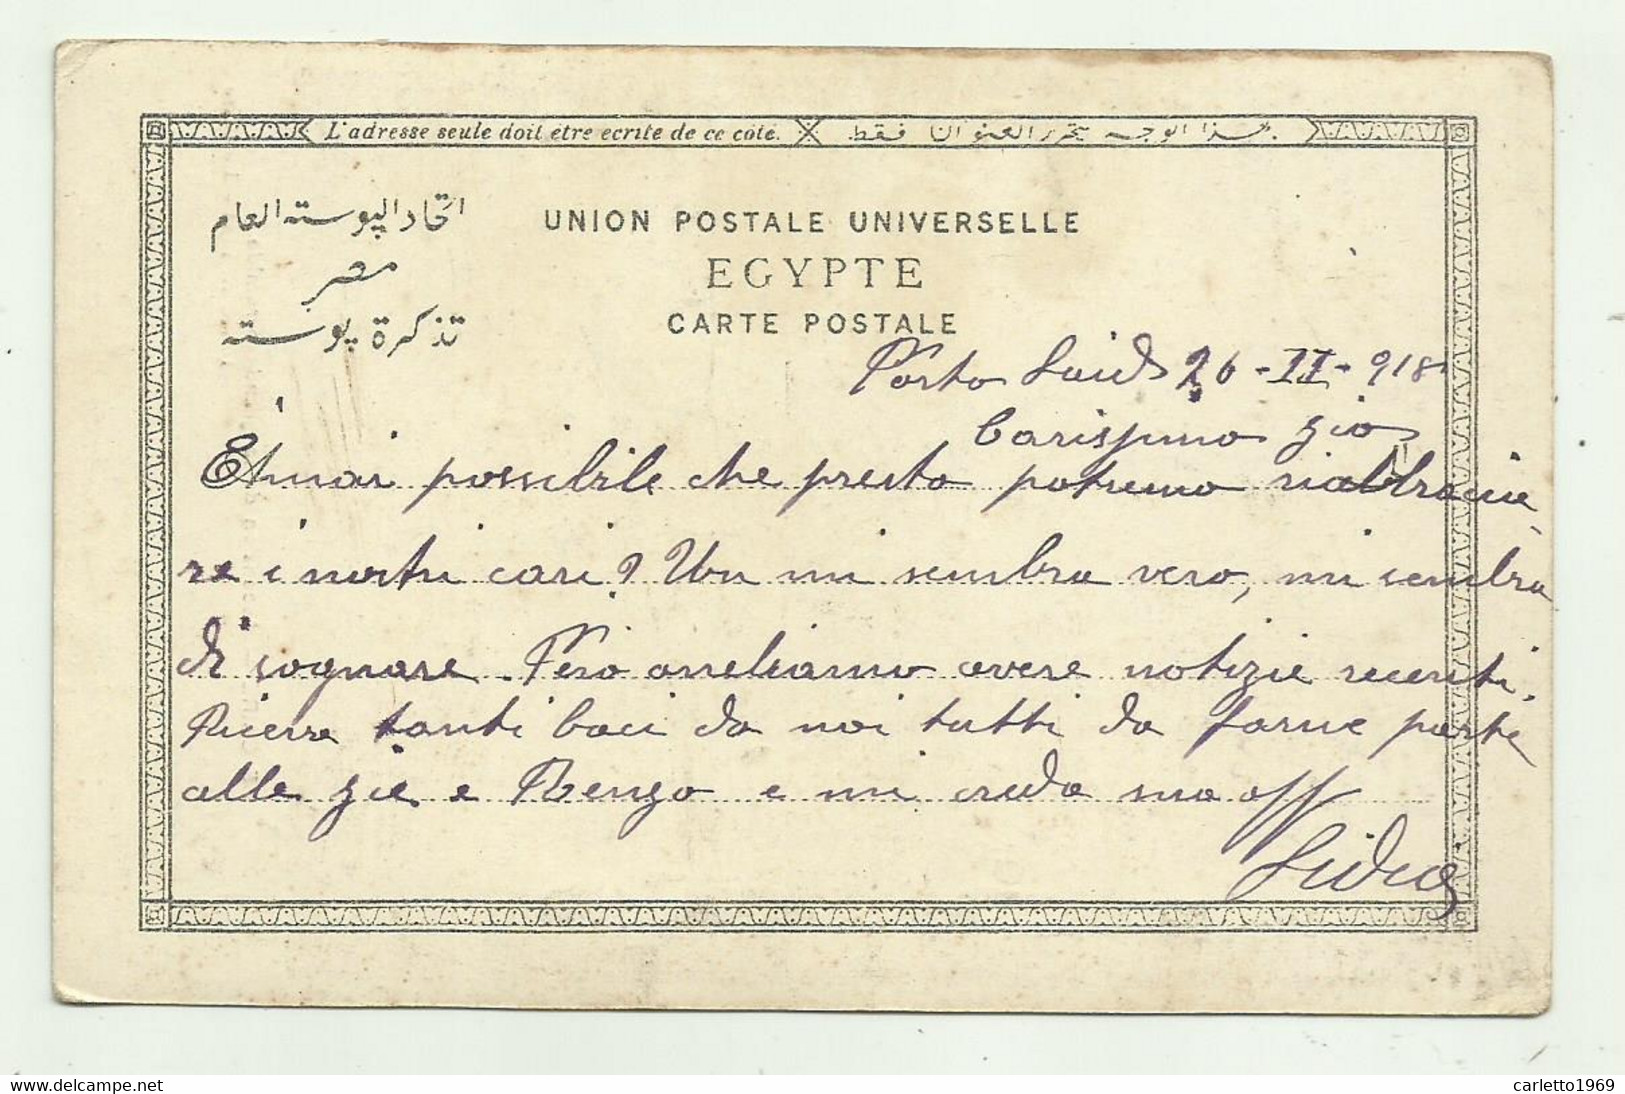 L'adresse seule doit être ecrite de ce côté. هذا الوجه يتحرر العنوان فقط.
اتحاد البوسته العام
مصر
تذكرة بوسته
UNION POSTALE UNIVERSELLE
EGYPTE
CARTE POSTALE
Porto Said 26-II-918
Carissimo zio
È mai possibile che presto potremo riabbraccia-
re i nostri cari? Non mi sembra vero, mi sembra
di sognare. Però aneliamo avere notizie recenti.
Riceva tanti baci da noi tutti da farne parte
alle zie e Renzo e mi creda sua aff
carletto1969
www.delcampe.net